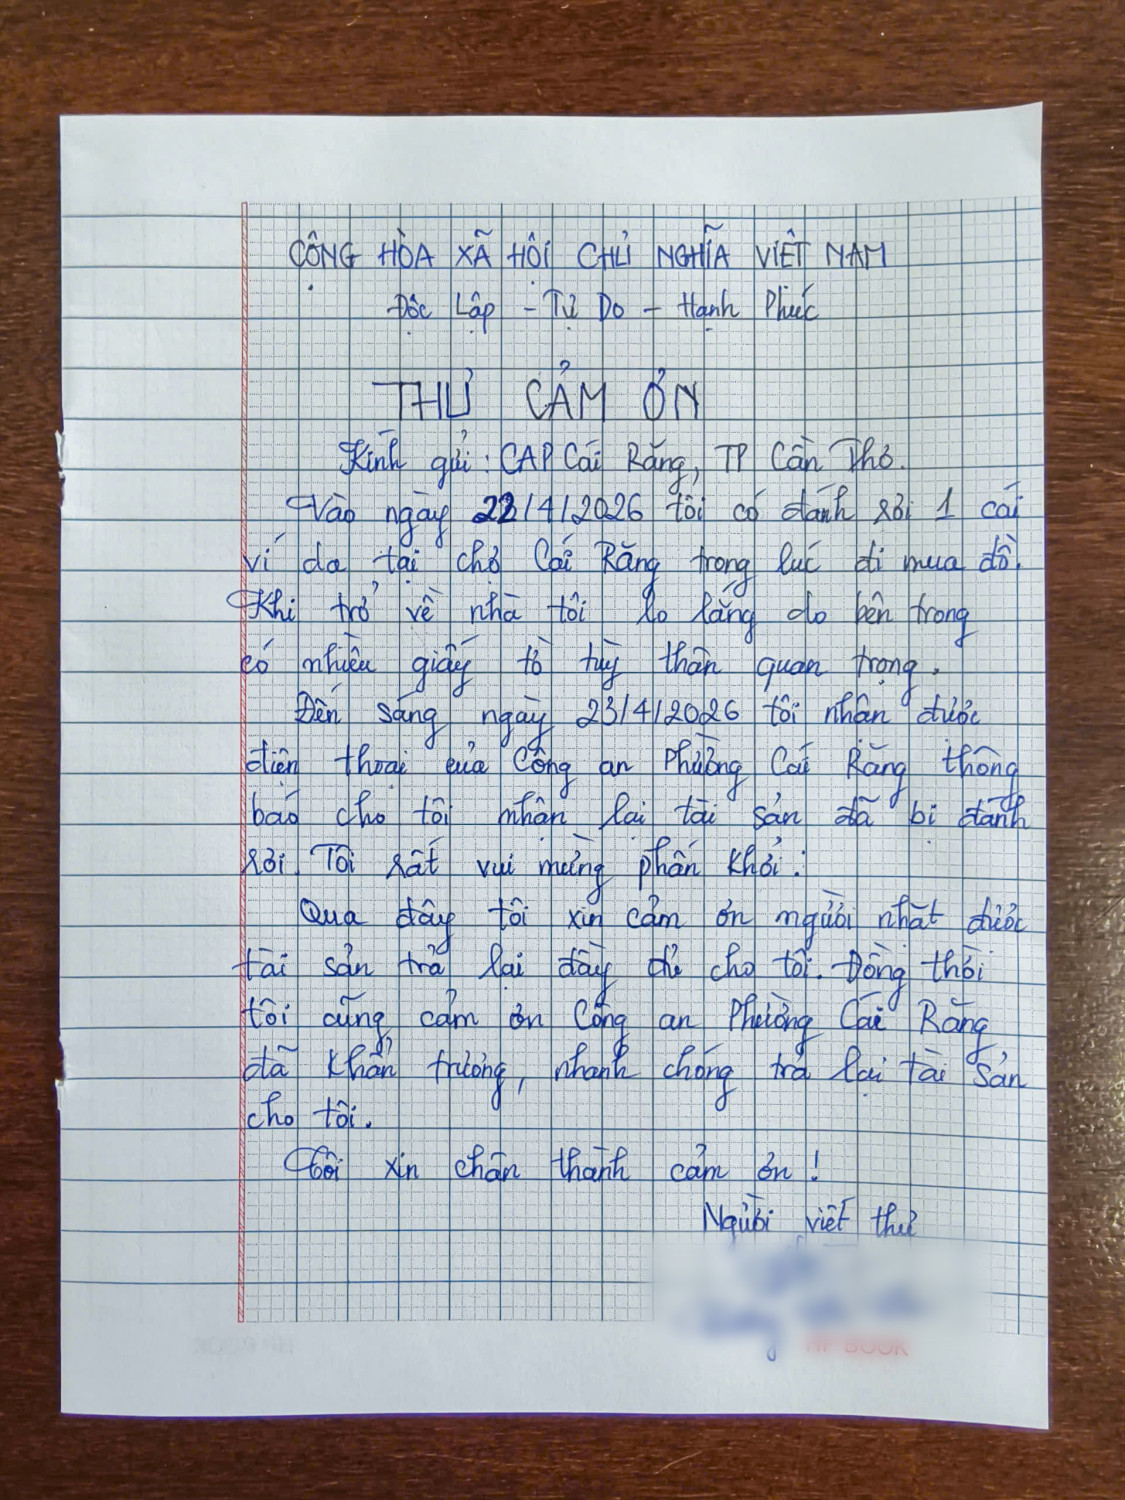 CỘNG HÒA XÃ HỘI CHỦ NGHĨA VIỆT NAM
Độc Lập - Tự Do - Hạnh Phúc
THƯ CẢM ƠN
Kính gửi: CAP Cái Răng, TP Cần Thơ.
Vào ngày 22/4/2026 tôi có đánh rơi 1 cái
ví da tại chợ Cái Răng trong lúc đi mua đồ.
Khi trở về nhà tôi lo lắng do bên trong
có nhiều giấy tờ tùy thân quan trọng.
Đến sáng ngày 23/4/2026 tôi nhận được
điện thoại của Công an Phường Cái Răng thông
báo cho tôi nhận lại tài sản đã bị đánh
rơi. Tôi rất vui mừng phấn khởi.
Qua đây tôi xin cảm ơn người nhặt được
tài sản trả lại đầy đủ cho tôi. Đồng thời
tôi cũng cảm ơn Công an Phường Cái Răng
đã khẩn trương, nhanh chóng trả lại tài sản
cho tôi.
Tôi xin chân thành cảm ơn!
Người viết thư
HP BOOK